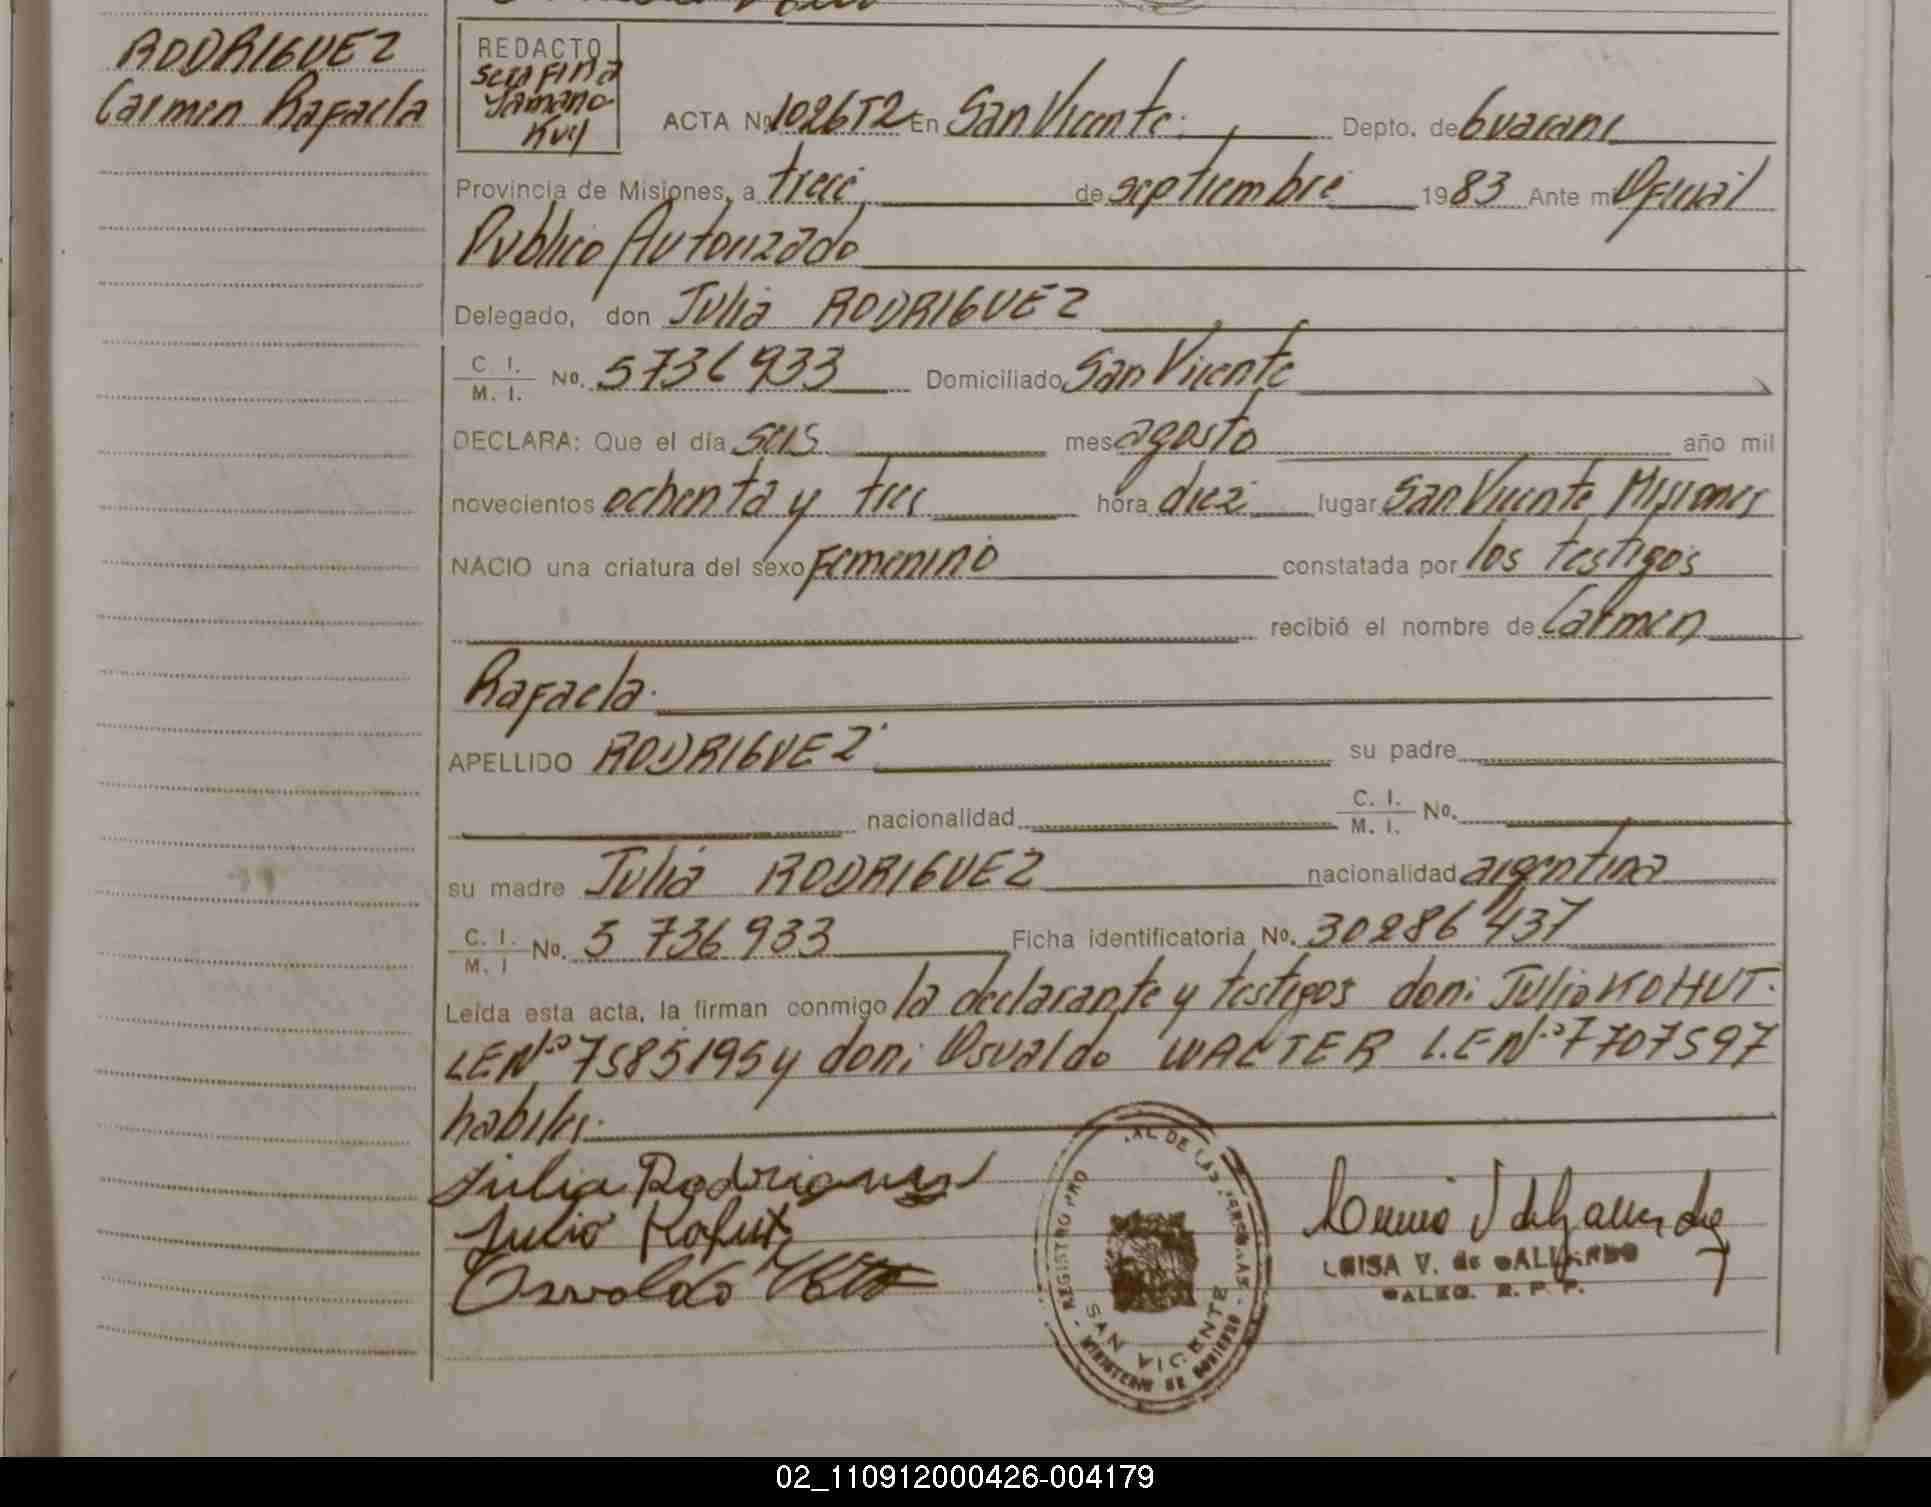 RODRIGUEZ
Carmen Rafaela
REDACTO
Serafina
Kuij
ACTA Nº 1026T2 En San Vicente. Depto. de Guarani
Provincia de Misiones, a trece de septiembre 1983 Ante mi Oficial
Publico Autorizado
Delegado, don Julia RODRIGUEZ
C. I. / M. I. No. 5736933 Domiciliado San Vicente
DECLARA: Que el día seis mes agosto año mil
novecientos ochenta y tres hora diez lugar San Vicente Misiones
NACIO una criatura del sexo Femenino constatada por los testigos
recibió el nombre de Carmen
Rafaela.
APELLIDO RODRIGUEZ su padre
nacionalidad C. I. / M. I. No.
su madre Julia RODRIGUEZ nacionalidad argentina
C. I. / M. I No. 5 736 933 Ficha identificatoria No. 30286437
Leída esta acta, la firman conmigo la declarante y testigos don: Julio KOHUT.
LE Nº 7585195 y don: Osvaldo WALTER L.E Nº 7707597
habiles.
Julia Rodriguez
Julio Kohut
Osvaldo
REGISTRO PRO AL DE LAS PERSONAS
SAN VICENTE
MINISTERIO DE GOBIERNO
LUISA V. de GALLARDO
R. P. P.
02_110912000426-004179